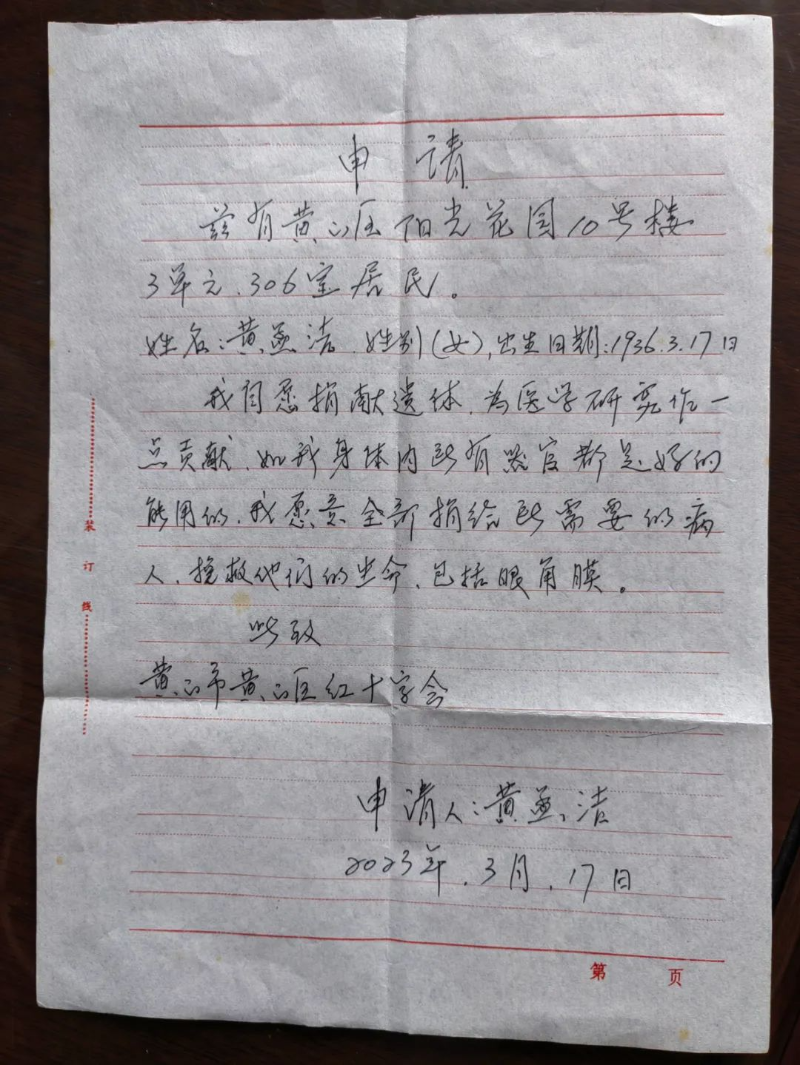 申请
兹有黄山区阳光花园10号楼
3单元.306室居民。
姓名:黄孟洁.姓别(女),出生日期:1936.3.17日
我自愿捐献遗体.为医学研究作一
点贡献.如我身体内所有器官都是好的
能用的.我愿意全部捐给所需要的病
人.挽救他们的生命.包括眼角膜。
此致
黄山市黄山区红十字会
申请人:黄孟洁
2023年.3月.17日
装订线
第 页